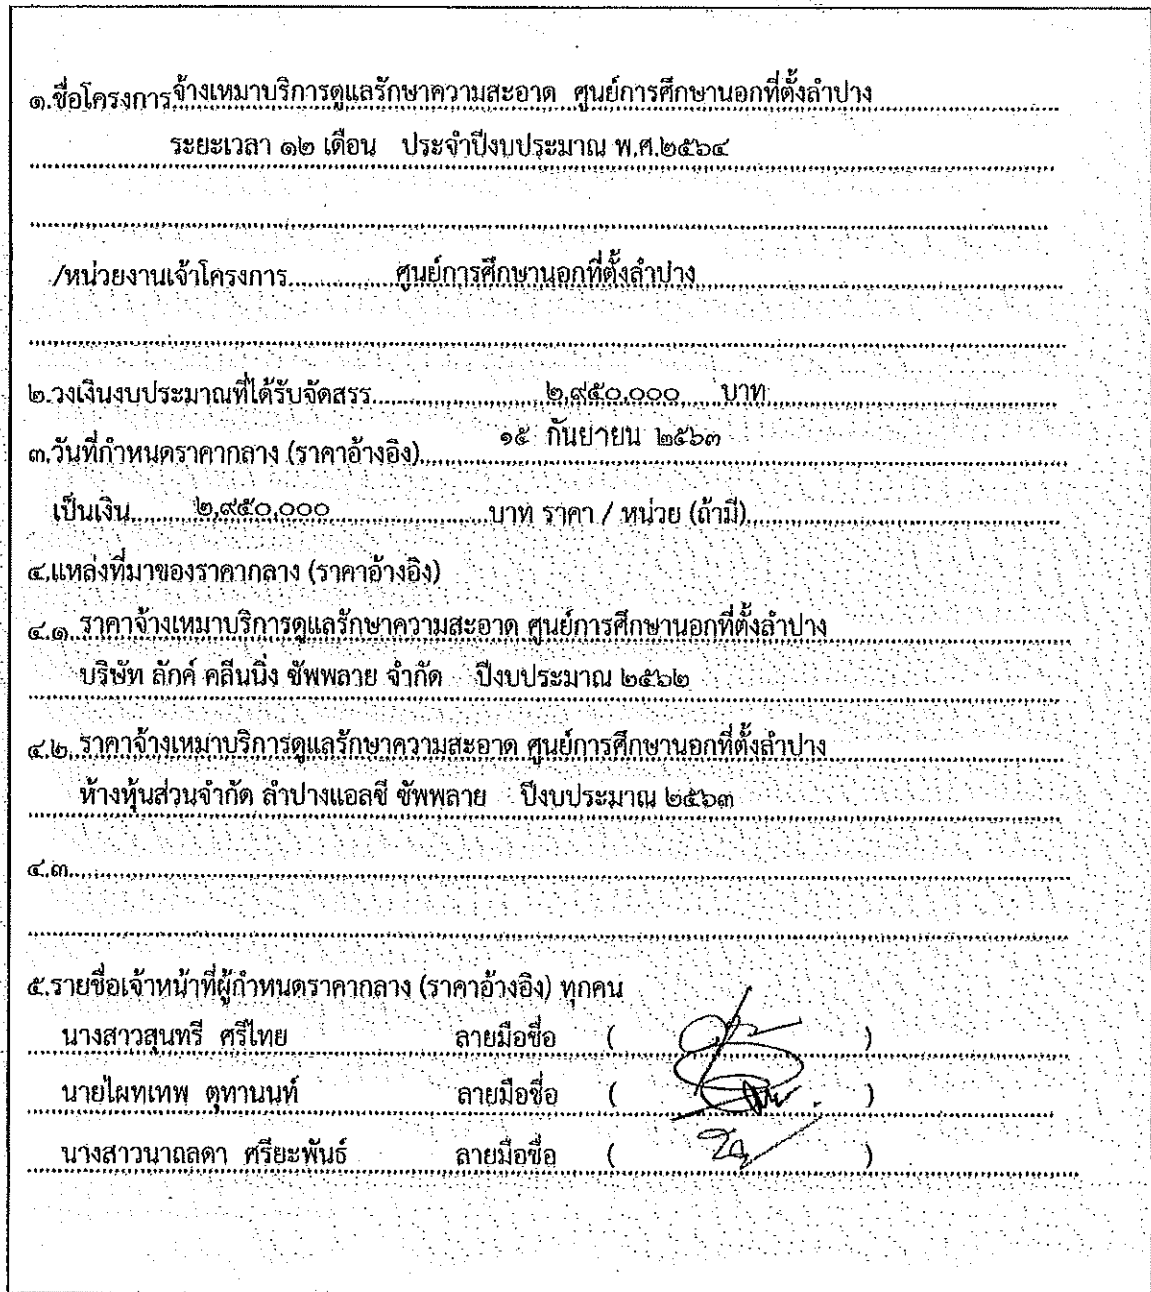 ๑.ชื่อโครงการ จ้างเหมาบริการดูแลรักษาความสะอาด ศูนย์การศึกษานอกที่ตั้งลำปาง
ระยะเวลา ๑๒ เดือน ประจำปีงบประมาณ พ.ศ.๒๕๖๔
/หน่วยงานเจ้าโครงการ ศูนย์การศึกษานอกที่ตั้งลำปาง
๒.วงเงินงบประมาณที่ได้รับจัดสรร ๒,๙๕๐,๐๐๐ บาท
๓.วันที่กำหนดราคากลาง (ราคาอ้างอิง) ๑๕ กันยายน ๒๕๖๓
เป็นเงิน ๒,๙๕๐,๐๐๐ บาท ราคา / หน่วย (ถ้ามี)
๔.แหล่งที่มาของราคากลาง (ราคาอ้างอิง)
๔.๑. ราคาจ้างเหมาบริการดูแลรักษาความสะอาด ศูนย์การศึกษานอกที่ตั้งลำปาง
บริษัท ลักค์ คลีนนิ่ง ซัพพลาย จำกัด ปีงบประมาณ ๒๕๖๒
๔.๒. ราคาจ้างเหมาบริการดูแลรักษาความสะอาด ศูนย์การศึกษานอกที่ตั้งลำปาง
ห้างหุ้นส่วนจำกัด ลำปางแอลซี ซัพพลาย ปีงบประมาณ ๒๕๖๓
๔.๓.
๕.รายชื่อเจ้าหน้าที่ผู้กำหนดราคากลาง (ราคาอ้างอิง) ทุกคน
นางสาวสุนทรี ศรีไทย ลายมือชื่อ ( )
นายไผทเทพ ตุทานนท์ ลายมือชื่อ ( )
นางสาวนาถลดา ศรียะพันธ์ ลายมือชื่อ ( )